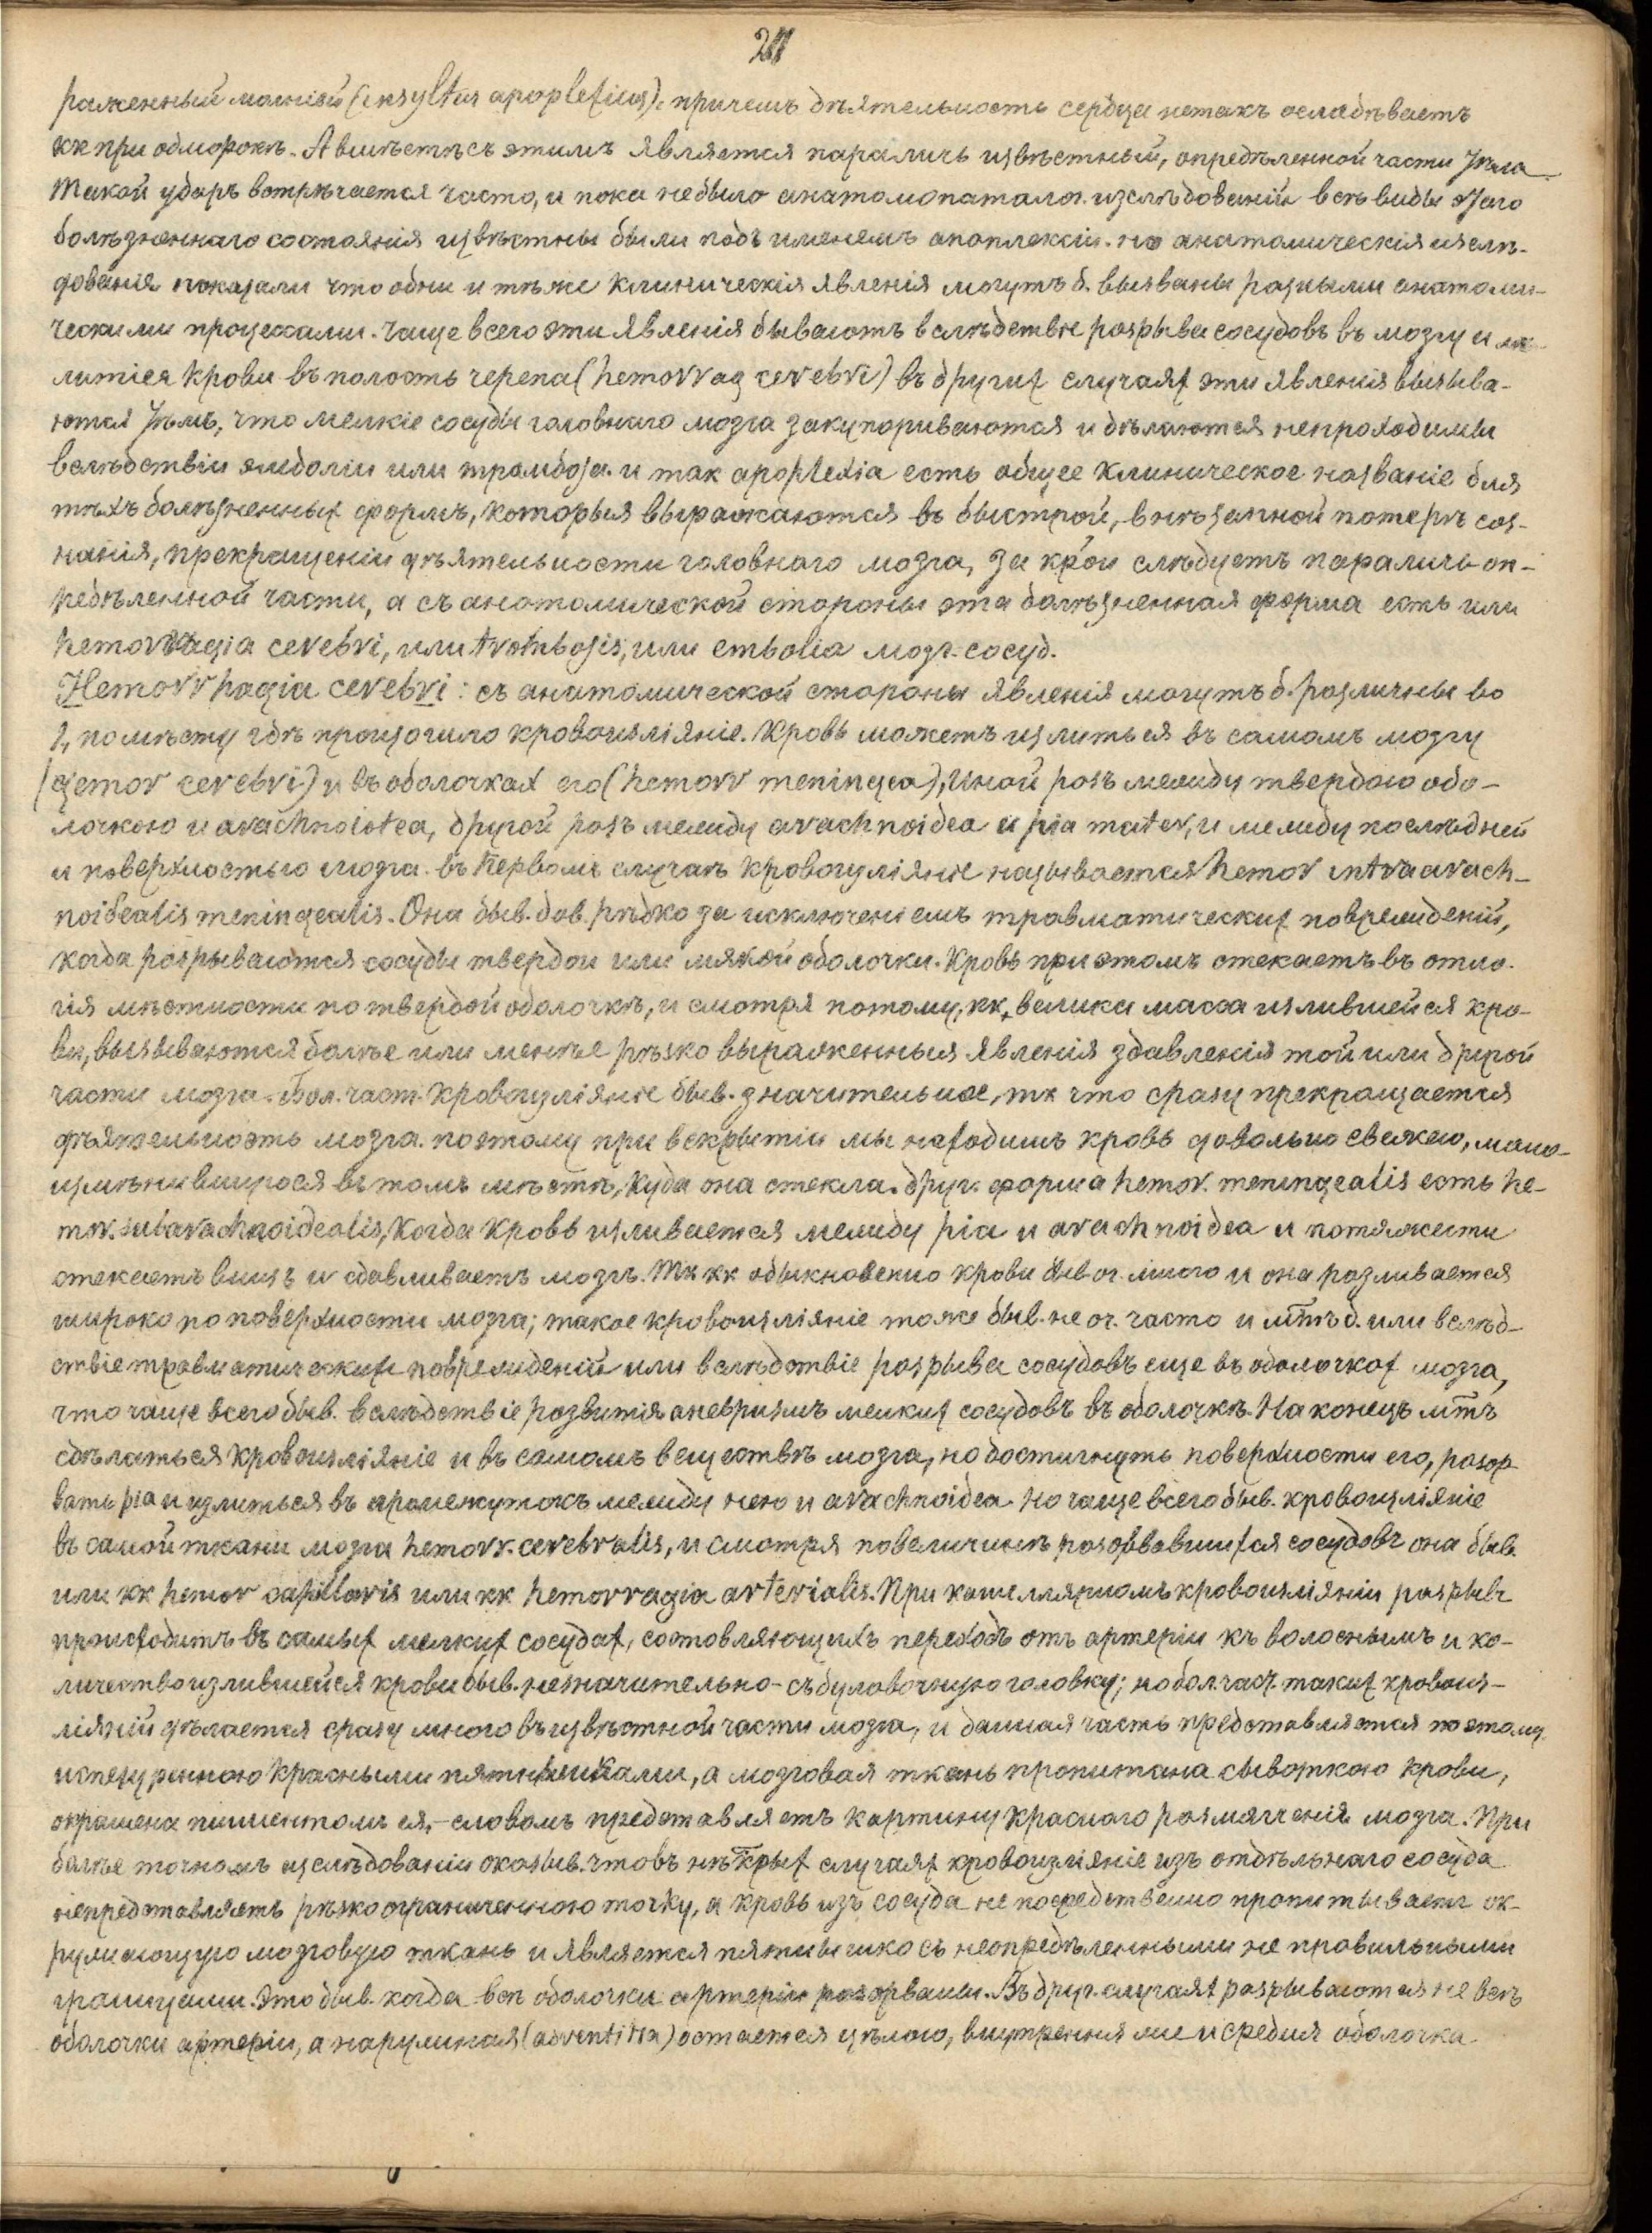 21
раженный молніей (insyltus apopleticus), причемъ дѣятельность сердца нетакъ ослабѣваетъ
кк при обморокѣ. А вмѣстѣ съ этимъ является параличъ извѣстный, опредѣленной части тѣла.
Такой ударъ встрѣчается часто, и пока небыло анатомопатолог. изслѣдованій всѣ виды этаго
болѣзненнаго состоянія извѣстны были подъ именемъ апоплексіи. но анатомическія изслѣ-
дованія показали что одни и тѣже клиническія явленія могутъ б. вызваны разными анатоми-
ческими процессами. чаще всего эти явленія бываютъ вслѣдствіе разрыва сосудовъ въ мозгу и из-
литіея крови въ полость черепа (hemorrag cerebri) въ другихъ случаях эти явленія вызыва-
ются тѣмъ, что мелкіе сосуды головнаго мозга закупориваются и дѣлаются непроходимы
вслѣдствіи эмболіи или тромбоза. и так apoplexia есть общее клиническое названіе для
тѣхъ болѣзненных формъ, которыя выражаются въ быстрой, внѣзапной потерѣ соз-
нанія, прекращеніи дѣятельности головнаго мозга, за крои слѣдуетъ параличъ оп-
редѣленной части, а съ анотомической стороны эта болѣзненная форма есть или
hemorragia cerebri, или trombosis, или embolia мозг. сосуд.
Hemorrhagia cerebri: съ анатомической стороны явленія могутъ б. различны во
1, по мѣсту гдѣ произошло кровоизліяніе. Кровь можетъ излиться въ самомъ мозгу
(hemor cerebri) и въ оболочках его (hemorr meningea), Иной разъ между твердою обо-
лочкою и arachnoidea, другой разъ между arachnoidea и pia mater, и между послѣдней
и поверхностью мозга. въ первомъ случаѣ кровоизліяніе называется hemor intraarach-
noidealis meningealis. Она быв. дов. рѣдко за исключеніемъ травматических поврежденій,
когда разрываются сосуды твердои или мякой оболочки. Кровь при этомъ стекаетъ въ отло-
гія мѣстности по твердой оболочкѣ, и смотря потому, кк велика масса излившейся кро-
ви, вызываются болѣе или менѣе рѣзко выраженныя явленія здавленія той или другой
части мозга. Бол. част. кровоизліяніе быв. значительное, тк что сразу прекращается
дѣятельность мозга. поэтому при вскрытіи мы находимъ кровь довольно свежею, мало-
измѣнившуюся въ томъ мѣстѣ, куда она стекла. друг. форма hemor. meningealis есть he-
mor. subarachnoidealis, когда кровь изливается между pia и arachnoidea и потяжести
стекаетъ внизъ и сдавливаетъ мозгъ. Тк кк обыкновенно крови быв. оч. много и она разливается
широко по поверхности мозга; такое кровоизліяніе тоже быв. не оч. часто и мтъ б. или вслѣд-
ствіе травматических поврежденій или вслѣдствіе разрыва сосудовъ еще въ оболочках мозга,
что чаще всего быв. вслѣдствіе развитія аневризмъ мелких сосудовъ въ оболочкѣ. Наконецъ мтъ
сдѣлаться кровоизліяніе и въ самомъ веществѣ мозга, но достигнуть поверхности его, разор-
вать pia и излиться въ промежутокъ между нею и arachnoidea. но чаще всего быв. кровоизліяніе
въ самой ткани мозга hemorr. cerebralis, и смотря повеличинѣ разорвавшихся сосудовъ она быв.
или кк hemor capillaris или кк hemorragia arterialis. При капиллярномъ кровоизліяніи разрывъ
происходитъ въ самых мелких сосудах, состовляющихъ переходъ отъ артеріи къ волоснымъ и ко-
личество излившейся крови быв. незначительно - съ булавочную головку; но бол. част. таких кровоиз-
ліяній дѣлается сразу много въ извѣстной части мозга, и данная часть представляется поэтому
испещренною красными пятнышками, а мозговая ткань пропитана сывоткою крови,
окрашена пигментомъ ея, - словомъ представляетъ картину краснаго размягченія мозга. При
болѣе точномъ изслѣдованіи оказыв. что въ нѣкрых случаях кровоизліяніе изъ отдѣльнаго сосуда
непредставляетъ рѣзкоограниченною точку, а кровь изъ сосуда непосредственно пропитываетъ ок-
ружающую мозговую ткань и является пятнышко съ неопредѣленными не правильными
границами. Это быв. когда всѣ оболочки артеріи разорваны. Въ друг. случаях разрываются не всѣ
оболочки артеріи, а наружная (adventitia) остается цѣлою, внутренняя же и средняя оболочка